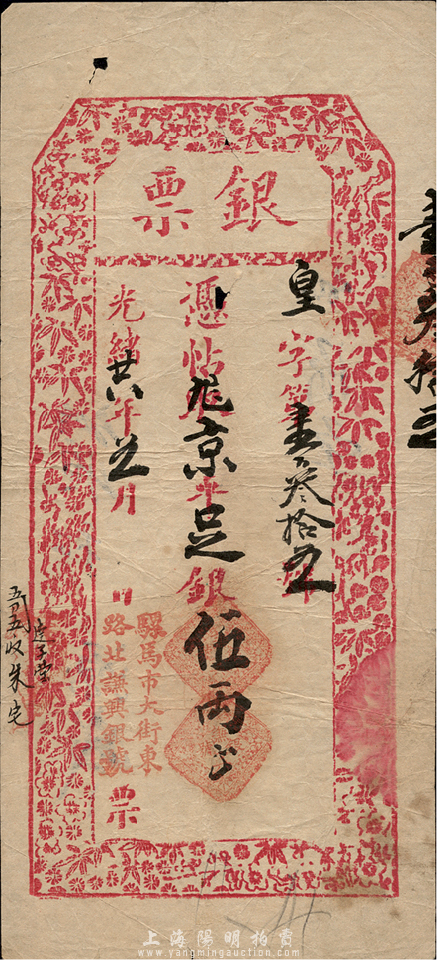 銀票
皇字第壹百叁拾五號
憑帖取京平足銀伍兩正
光緒廿八年五月 日
騾馬市大街東
路北謙興銀號
票
五月五收朱宅
上海陽明拍賣
www.yangmingauction.com